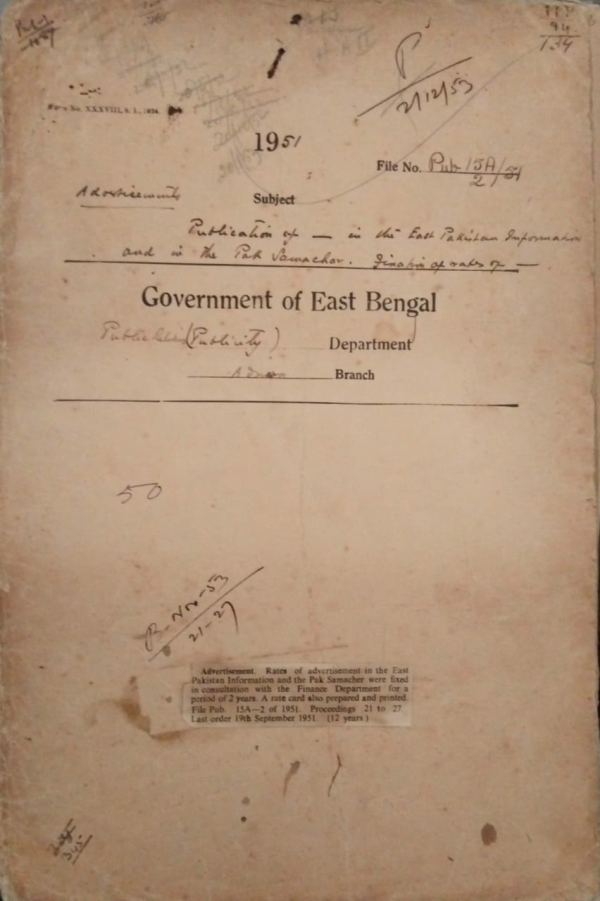 P
2/12/53
1951
File No. Pub 15A/51
2
Advertisements
Subject
Publication of — in the East Pakistan Information
and in the Pak Samachar. Fixation of rates of —
Government of East Bengal
(Publicity) Department
Branch
50
B-Nov-53
21-27
Advertisement. Rates of advertisement in the East
Pakistan Information and the Pak Samachar were fixed
in consultation with the Finance Department for a
period of 2 years. A rate card also prepared and printed.
File Pub. 15A—2 of 1951. Proceedings 21 to 27.
Last order 19th September 1951. (12 years.)